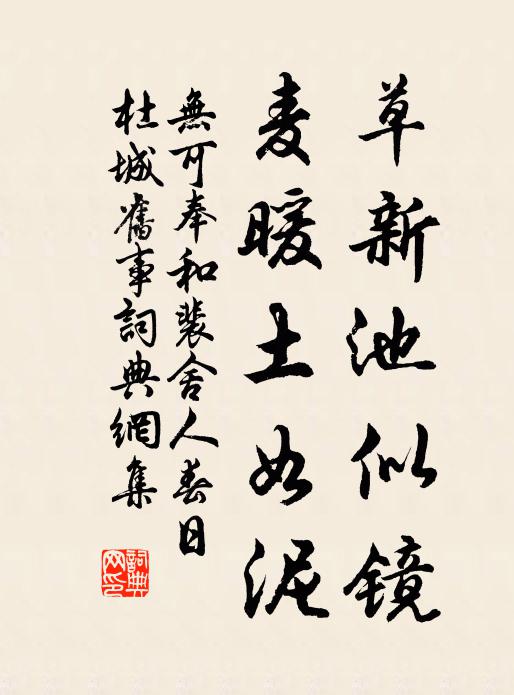 草新池似镜
麦暖土如泥
無可奉和裴舍人春日
杜城舊事詞典網集
詞典网印